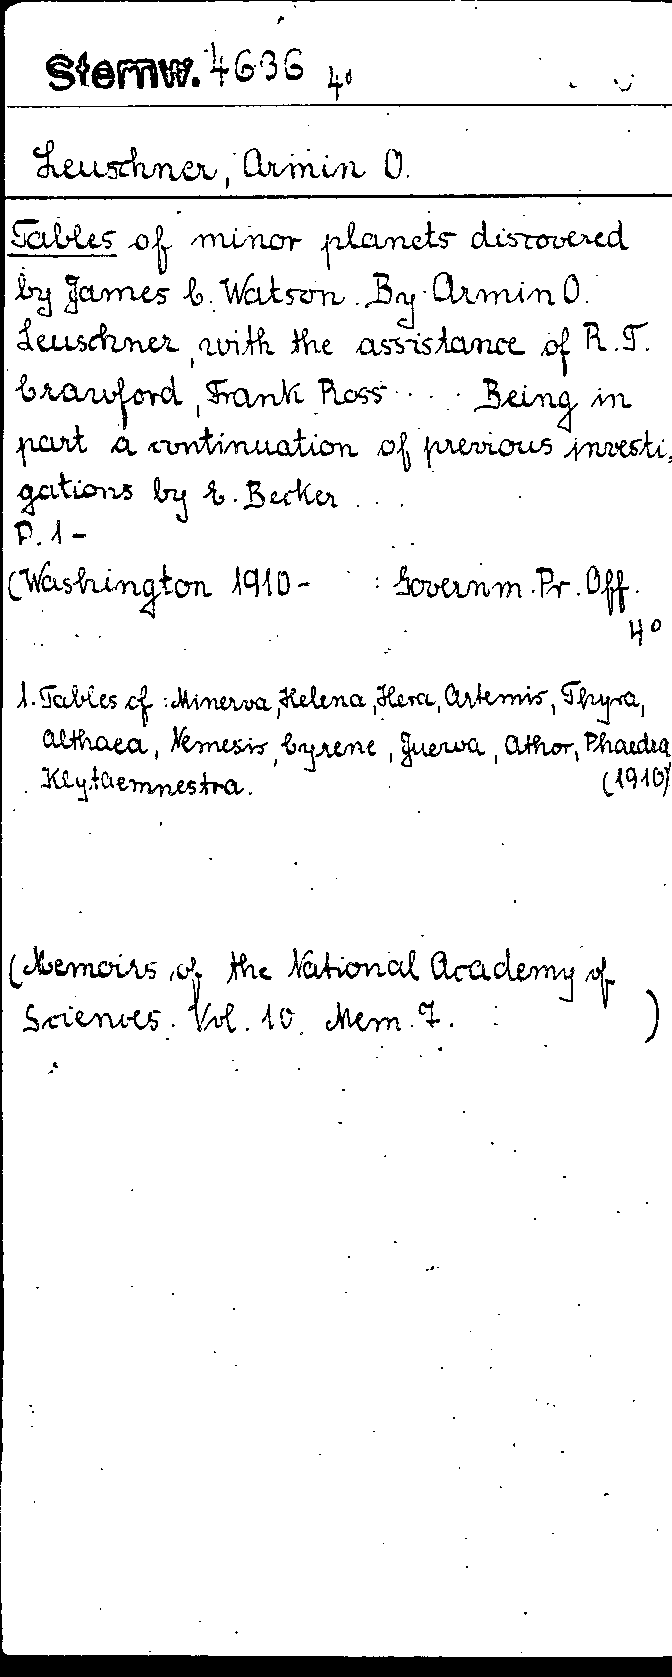 Sternw. 4636 4°
Leuschner, Armin O.
Tables of minor planets discovered
by James C. Watson. By Armin O.
Leuschner, with the assistance of R. T.
Crawford, Frank Ross .... Being in
part a continuation of previous investi-
gations by E. Becker ...
P. 1-
(Washington 1910- : Governm. Pr. Off.
4°
1. Tables of: Minerva, Helena, Hera, Artemis, Thyra,
Althaea, Nemesis, Cyrene, Juewa, Athor, Phaedra,
Klytaemnestra. (1910)
(Memoirs of the National Academy of
Sciences. Vol. 10. Mem. 7. )